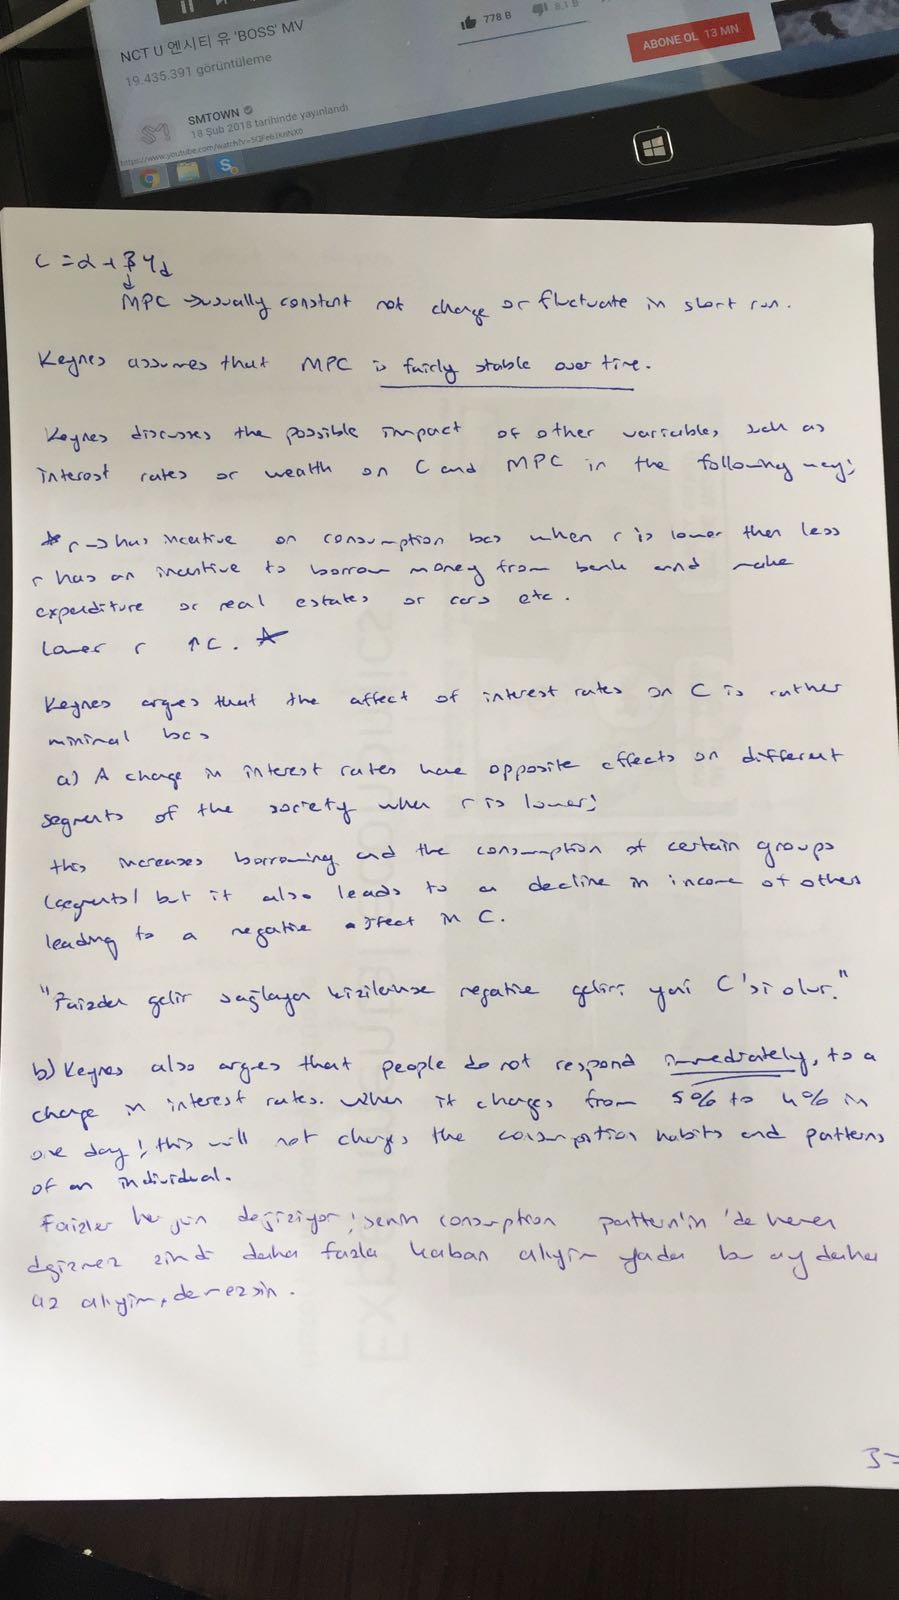 NCT U 엔시티 유 'BOSS' MV
19.435.391 görüntüleme
778 B
8,1 B
ABONE OL 13 MN
SMTOWN
18 Şub 2018 tarihinde yayınlandı
C = α + β Yd
MPC → usually constant not change or fluctuate in short run.
Keynes assumes that MPC is fairly stable over time.
Keynes discusses the possible impact of other variables, such as
interest rates or wealth on C and MPC in the following way;
* r → has incentive on consumption bcs when r is lower then less
r has an incentive to borrow money from bank and make
expenditure or real estates or cars etc.
Lower r ↑C. *
Keynes argues that the affect of interest rates on C is rather
minimal bcs
a) A change in interest rates have opposite effects on different
segments of the society when r is lower;
this increases borrowing and the consumption of certain groups
(segments) but it also leads to a decline in income of others
leading to a negative effect in C.
"Faizden gelir sağlayan kişilerinse negative geliri yani C'si olur."
b) Keynes also argues that people do not respond immediately, to a
change in interest rates. When it changes from 5% to 4% in
one day; this will not change the consumption habits and patterns
of an individual.
Faizler her gün değişiyor; senin consumption pattern'in 'de hemen
değişmez şimdi daha fazla kaban alıyim yada bu ay daha
az alıyim, demezsin.